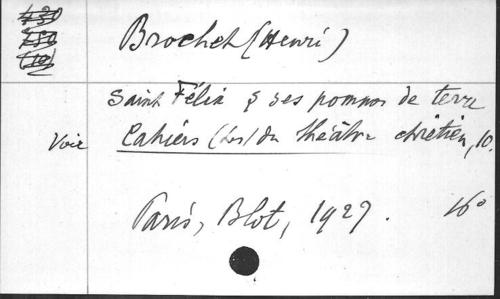 Brochet (Henri)
Saint Félix & ses pommes de terre
Voir Cahiers (Les) du théâtre chrétien, 10.
Paris, Blot, 1927. 16°